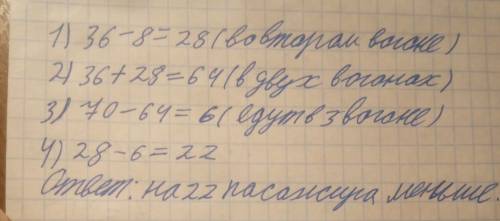 1) 36-8=28 (во втором вогоне)
2) 36+28=64 (в двух вогонах)
3) 70-64=6 (едут в 3 вогоне)
4) 28-6=22
Ответ: на 22 пасажира меньше.